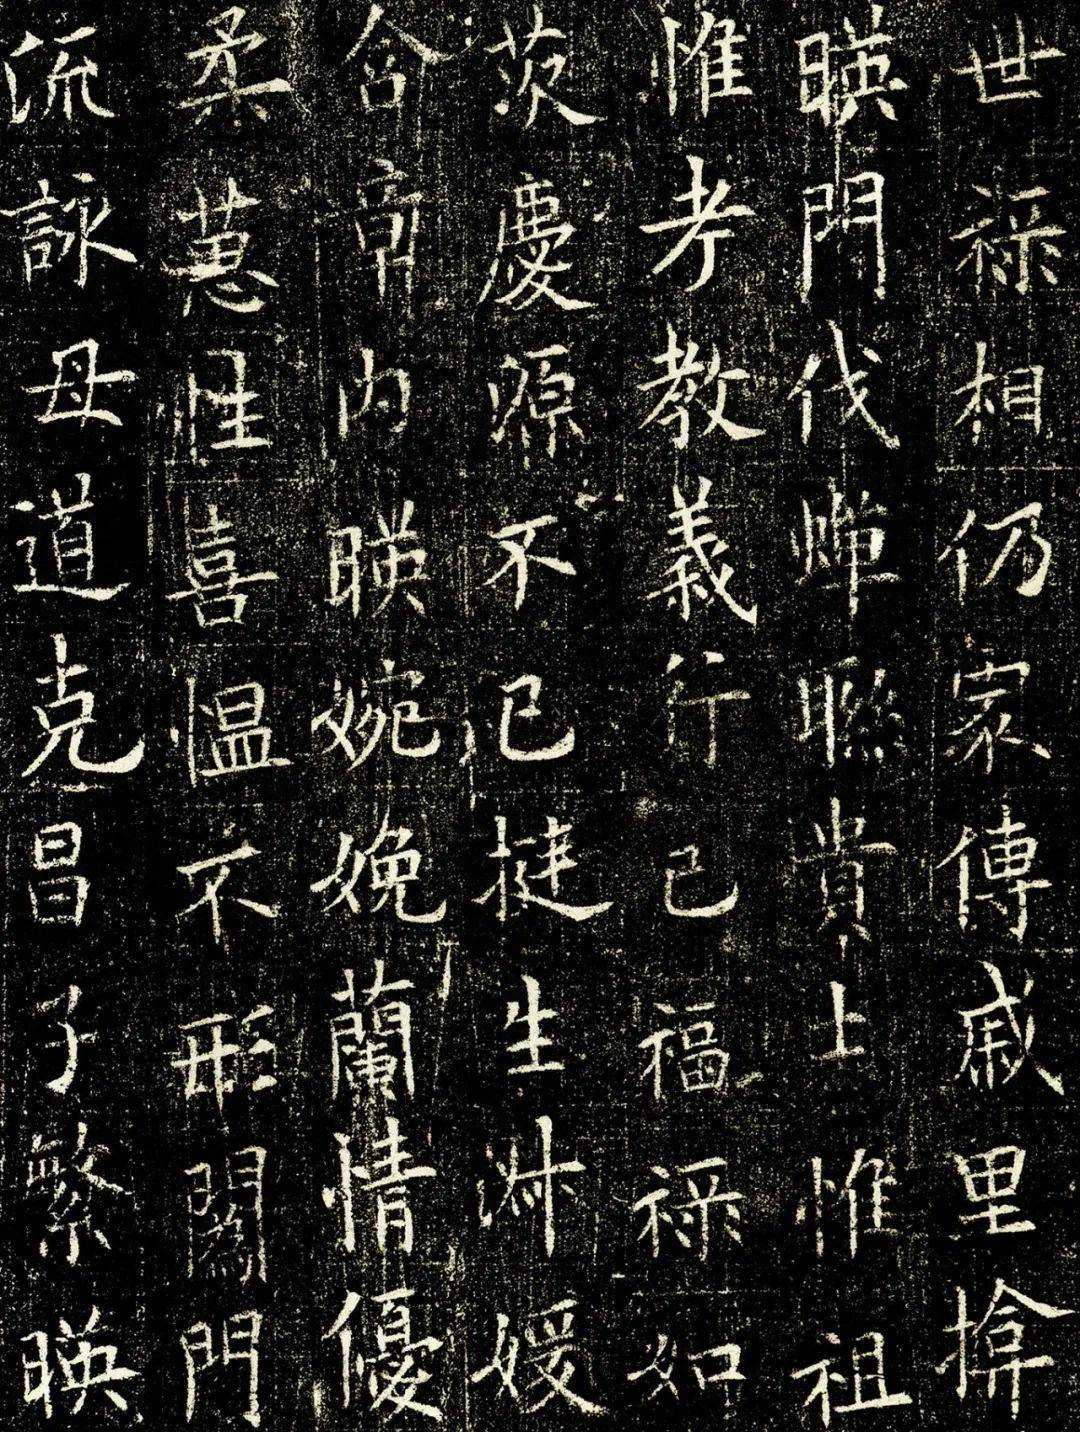 世祿相仍家傳戚里揜
暎門伐蟬聯貴上惟祖
惟考教義行己福祿如
茨慶源不已挺生淋媛
含章内暎婉娩蘭情優
柔蕙性喜愠不形閨門
流詠母道克昌子繁暎